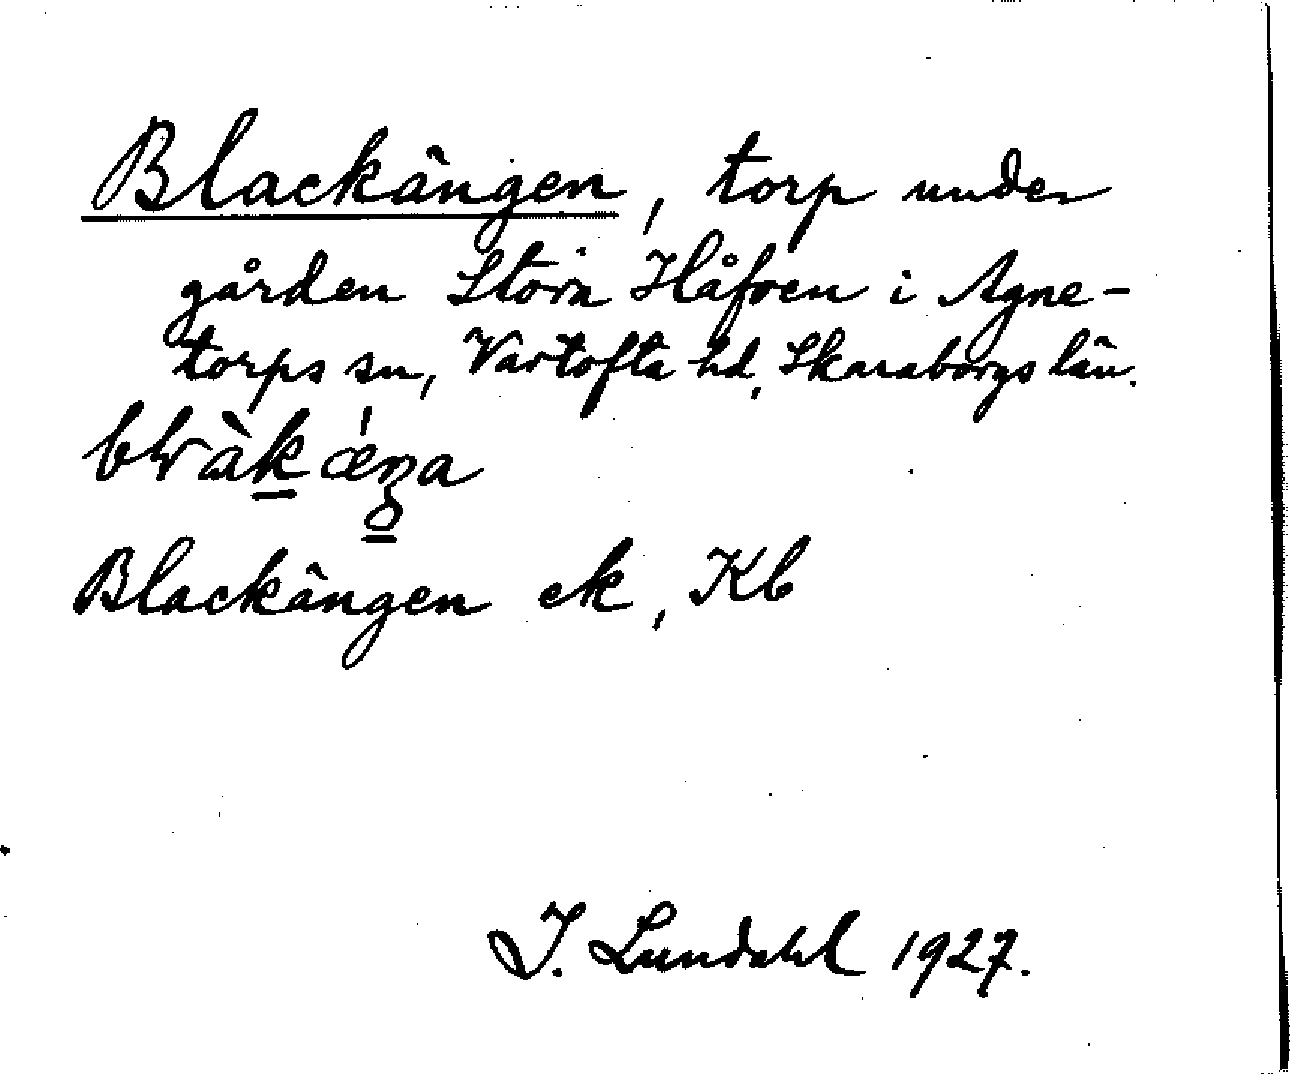 Blackängen, torp under
gården Stora Håfven i Agne-
torps sn, Vartofta hd, Skaraborgs län.
Blackängen ek, Kb
J. Lundahl 1927.